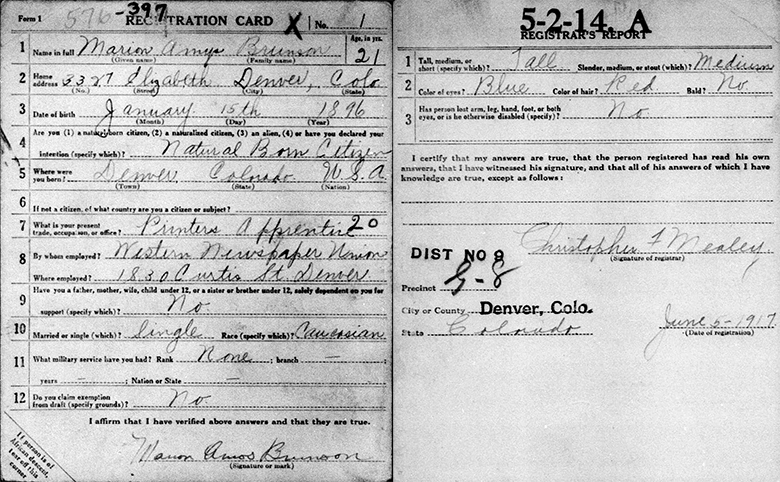 Form 1 576-397 REGISTRATION CARD X No. 1
1 Name in full Marion Amys Brunson Age, in yrs. 21
(Given name) (Family name)
2 Home address 3327 Elizabeth Denver, Colo
(No.) (Street) (City) (State)
3 Date of birth January 15th 1896
(Month) (Day) (Year)
4 Are you (1) a natural-born citizen, (2) a naturalized citizen, (3) an alien, (4) or have you declared your
intention (specify which)? Natural Born Citizen
5 Where were you born? Denver Colorado U.S.A
(Town) (State) (Nation)
6 If not a citizen, of what country are you a citizen or subject?
7 What is your present trade, occupation, or office? Printers Apprentice 20
8 By whom employed? Western Newspaper Union
Where employed? 1830 Curtis St. Denver
9 Have you a father, mother, wife, child under 12, or a sister or brother under 12, solely dependent on you for
support (specify which)? No
10 Married or single (which)? Single Race (specify which)? Caucasian
11 What military service have you had? Rank None ; branch —
years — ; Nation or State —
12 Do you claim exemption from draft (specify grounds)? No.
I affirm that I have verified above answers and that they are true.
Marion Amos Brunson
(Signature or mark)
If person is of
African descent,
tear off this
corner
5-2-14. A
REGISTRAR'S REPORT
1 Tall, medium, or short (specify which)? Tall Slender, medium, or stout (which)? Medium
2 Color of eyes? Blue Color of hair? Red Bald? No
3 Has person lost arm, leg, hand, foot, or both
eyes, or is he otherwise disabled (specify)? No
I certify that my answers are true, that the person registered has read his own
answers, that I have witnessed his signature, and that all of his answers of which I
have knowledge are true, except as follows:
Christopher F Mealey
(Signature of registrar)
DIST NO 9
Precinct G-8
City or County Denver, Colo.
State Colorado June 5-1917
(Date of registration)